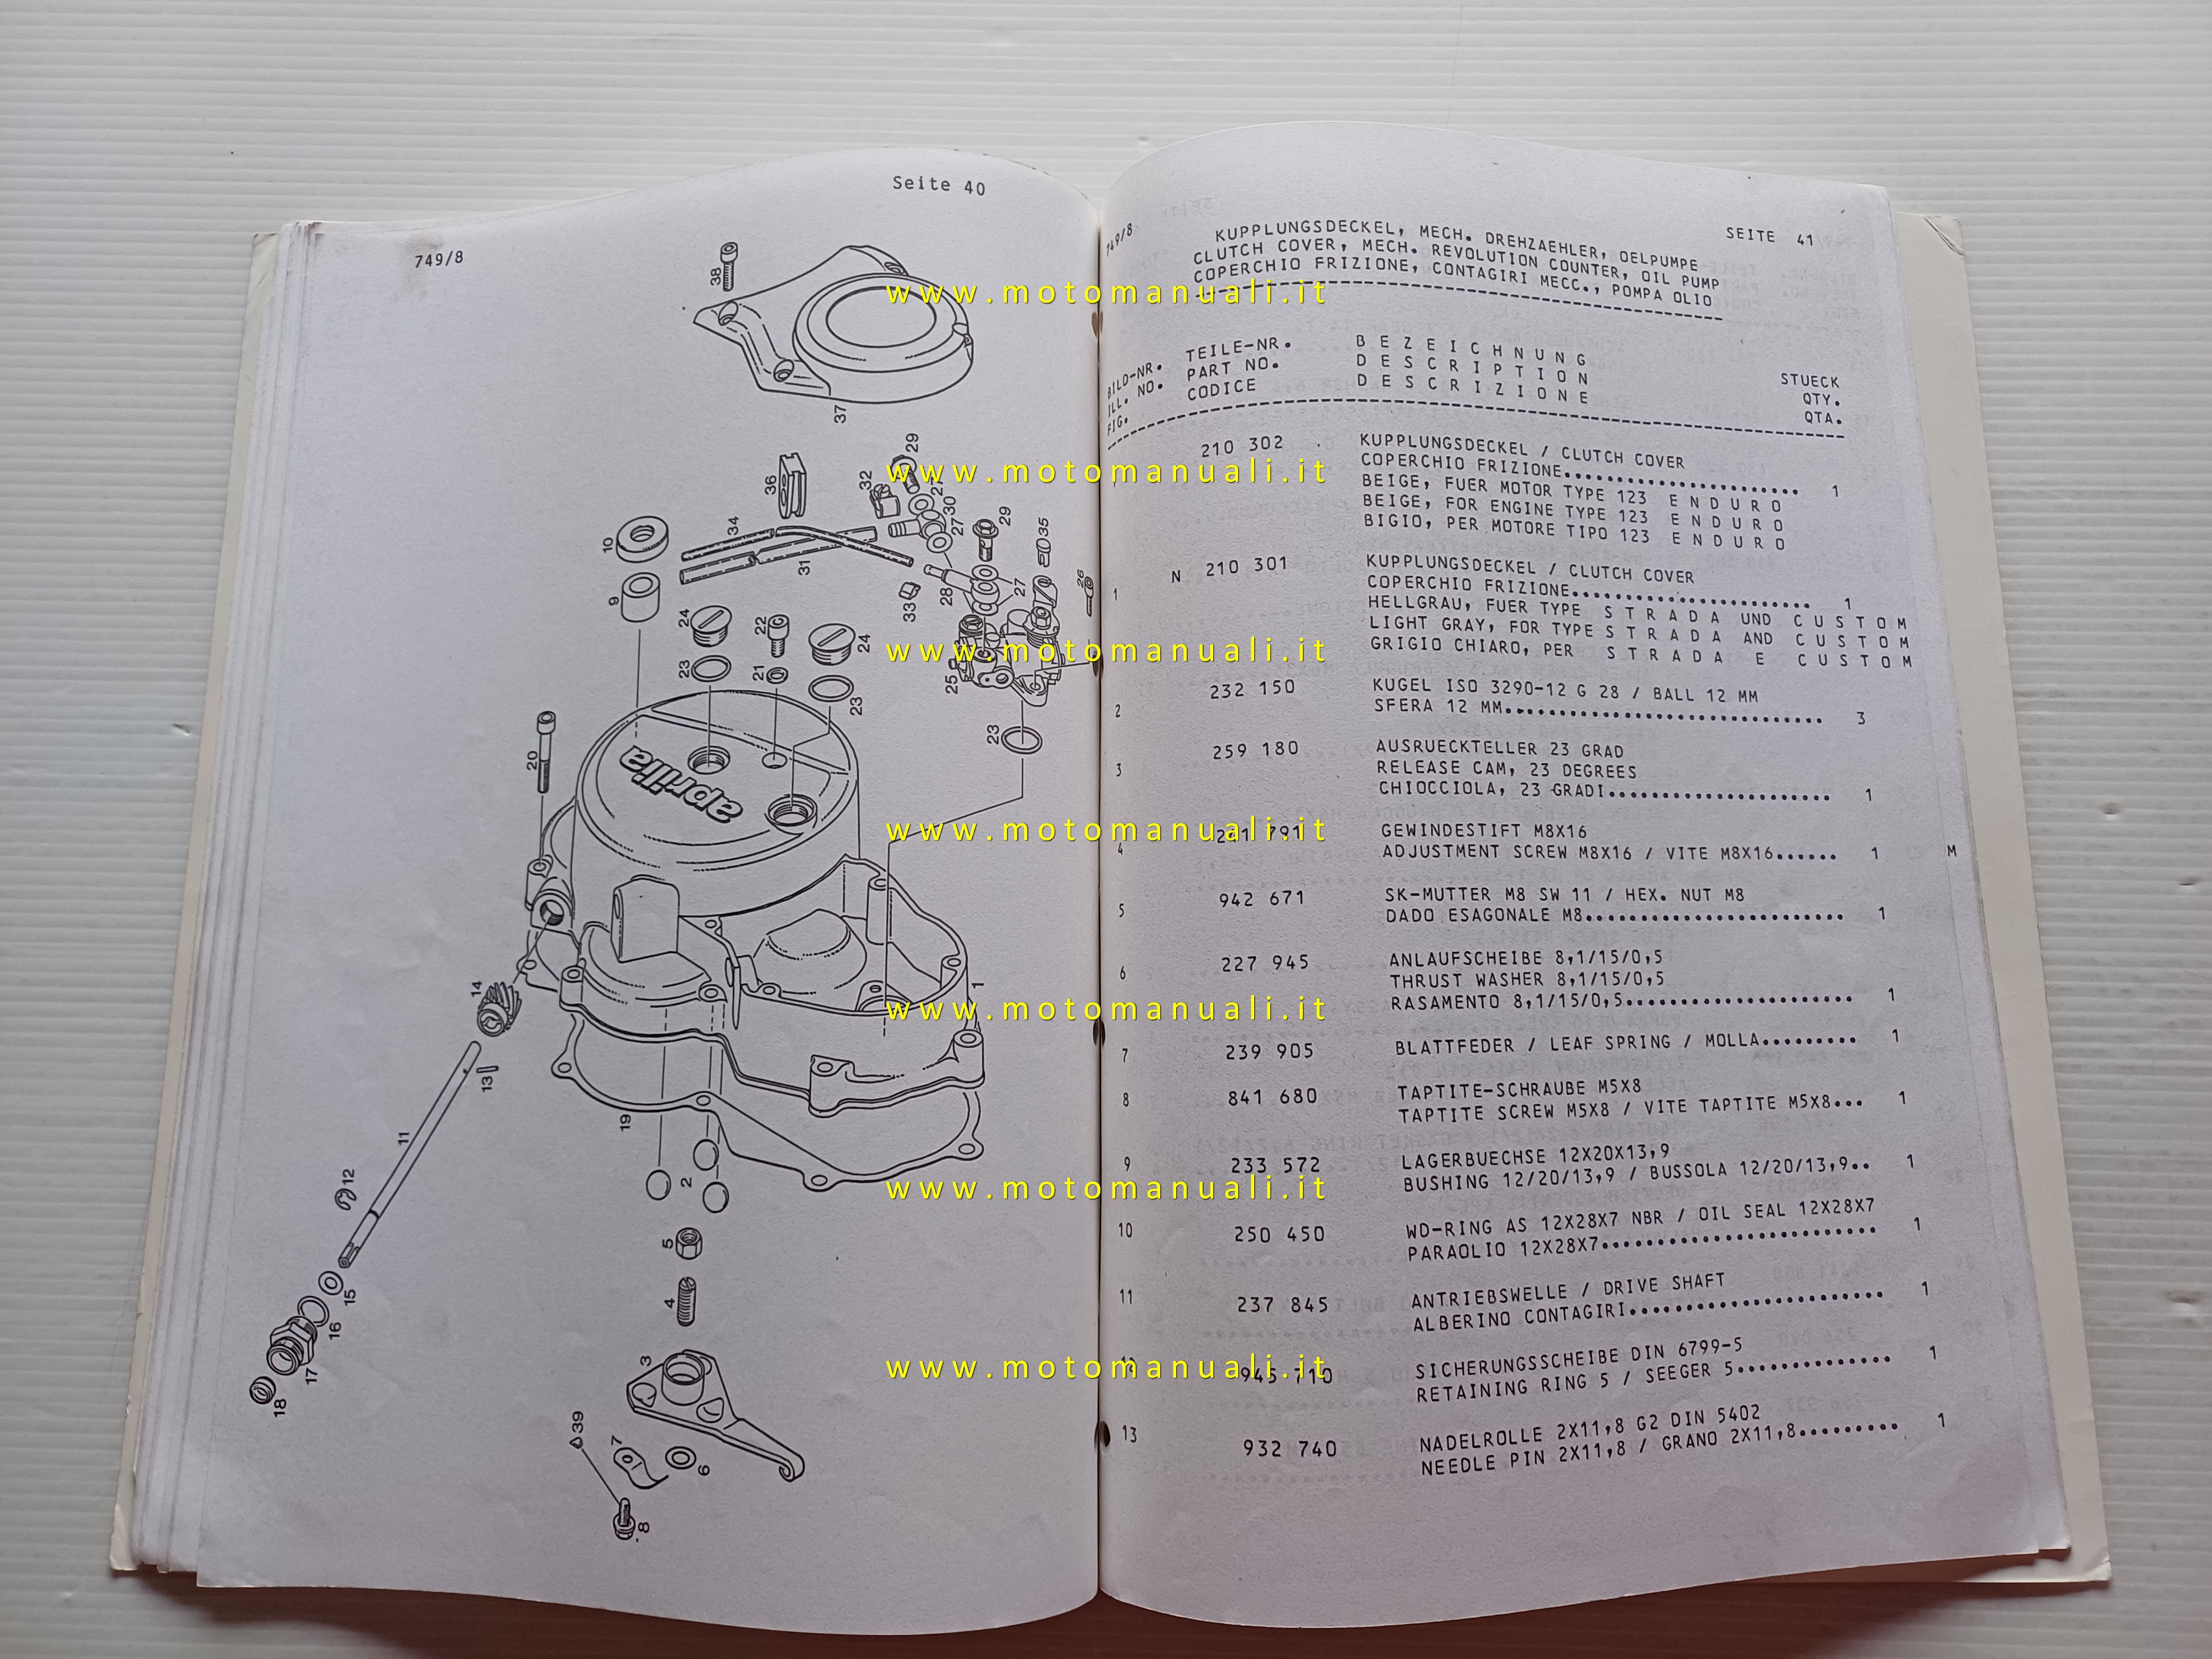 Seite 40
749/8
38
37
29
32
36
27
30
34
27
29
35
10
31
28
27
26
33
9
24
22
24
25
23
21
23
23
20
aprilia
14
1
13
19
11
2
12
5
15
4
16
3
17
18
39
7
6
8
749/8
KUPPLUNGSDECKEL, MECH. DREHZAEHLER, OELPUMPE
SEITE 41
CLUTCH COVER, MECH. REVOLUTION COUNTER, OIL PUMP
COPERCHIO FRIZIONE, CONTAGIRI MECC., POMPA OLIO
BILD-NR. TEILE-NR. B E Z E I C H N U N G STUECK
ILL. NO. PART NO. D E S C R I P T I O N QTY.
FIG. CODICE D E S C R I Z I O N E QTA.
210 302 KUPPLUNGSDECKEL / CLUTCH COVER
COPERCHIO FRIZIONE..................... 1
BEIGE, FUER MOTOR TYPE 123 E N D U R O
BEIGE, FOR ENGINE TYPE 123 E N D U R O
BIGIO, PER MOTORE TIPO 123 E N D U R O
1 N 210 301 KUPPLUNGSDECKEL / CLUTCH COVER
COPERCHIO FRIZIONE..................... 1
HELLGRAU, FUER TYPE S T R A D A UND C U S T O M
LIGHT GRAY, FOR TYPE S T R A D A AND C U S T O M
GRIGIO CHIARO, PER S T R A D A E C U S T O M
2 232 150 KUGEL ISO 3290-12 G 28 / BALL 12 MM
SFERA 12 MM............................ 3
3 259 180 AUSRUECKTELLER 23 GRAD
RELEASE CAM, 23 DEGREES
CHIOCCIOLA, 23 GRADI.................... 1
4 241 791 GEWINDESTIFT M8X16
ADJUSTMENT SCREW M8X16 / VITE M8X16...... 1 M
5 942 671 SK-MUTTER M8 SW 11 / HEX. NUT M8
DADO ESAGONALE M8....................... 1
6 227 945 ANLAUFSCHEIBE 8,1/15/0,5
THRUST WASHER 8,1/15/0,5
RASAMENTO 8,1/15/0,5.................... 1
7 239 905 BLATTFEDER / LEAF SPRING / MOLLA......... 1
8 841 680 TAPTITE-SCHRAUBE M5X8
TAPTITE SCREW M5X8 / VITE TAPTITE M5X8... 1
9 233 572 LAGERBUECHSE 12X20X13,9
BUSHING 12/20/13,9 / BUSSOLA 12/20/13,9.. 1
10 250 450 WD-RING AS 12X28X7 NBR / OIL SEAL 12X28X7
PARAOLIO 12X28X7........................ 1
11 237 845 ANTRIEBSWELLE / DRIVE SHAFT
ALBERINO CONTAGIRI...................... 1
12 945 710 SICHERUNGSSCHEIBE DIN 6799-5
RETAINING RING 5 / SEEGER 5.............. 1
13 932 740 NADELROLLE 2X11,8 G2 DIN 5402
NEEDLE PIN 2X11,8 / GRANO 2X11,8......... 1
www.motomanuali.it
www.motomanuali.it
www.motomanuali.it
www.motomanuali.it
www.motomanuali.it
www.motomanuali.it
www.motomanuali.it